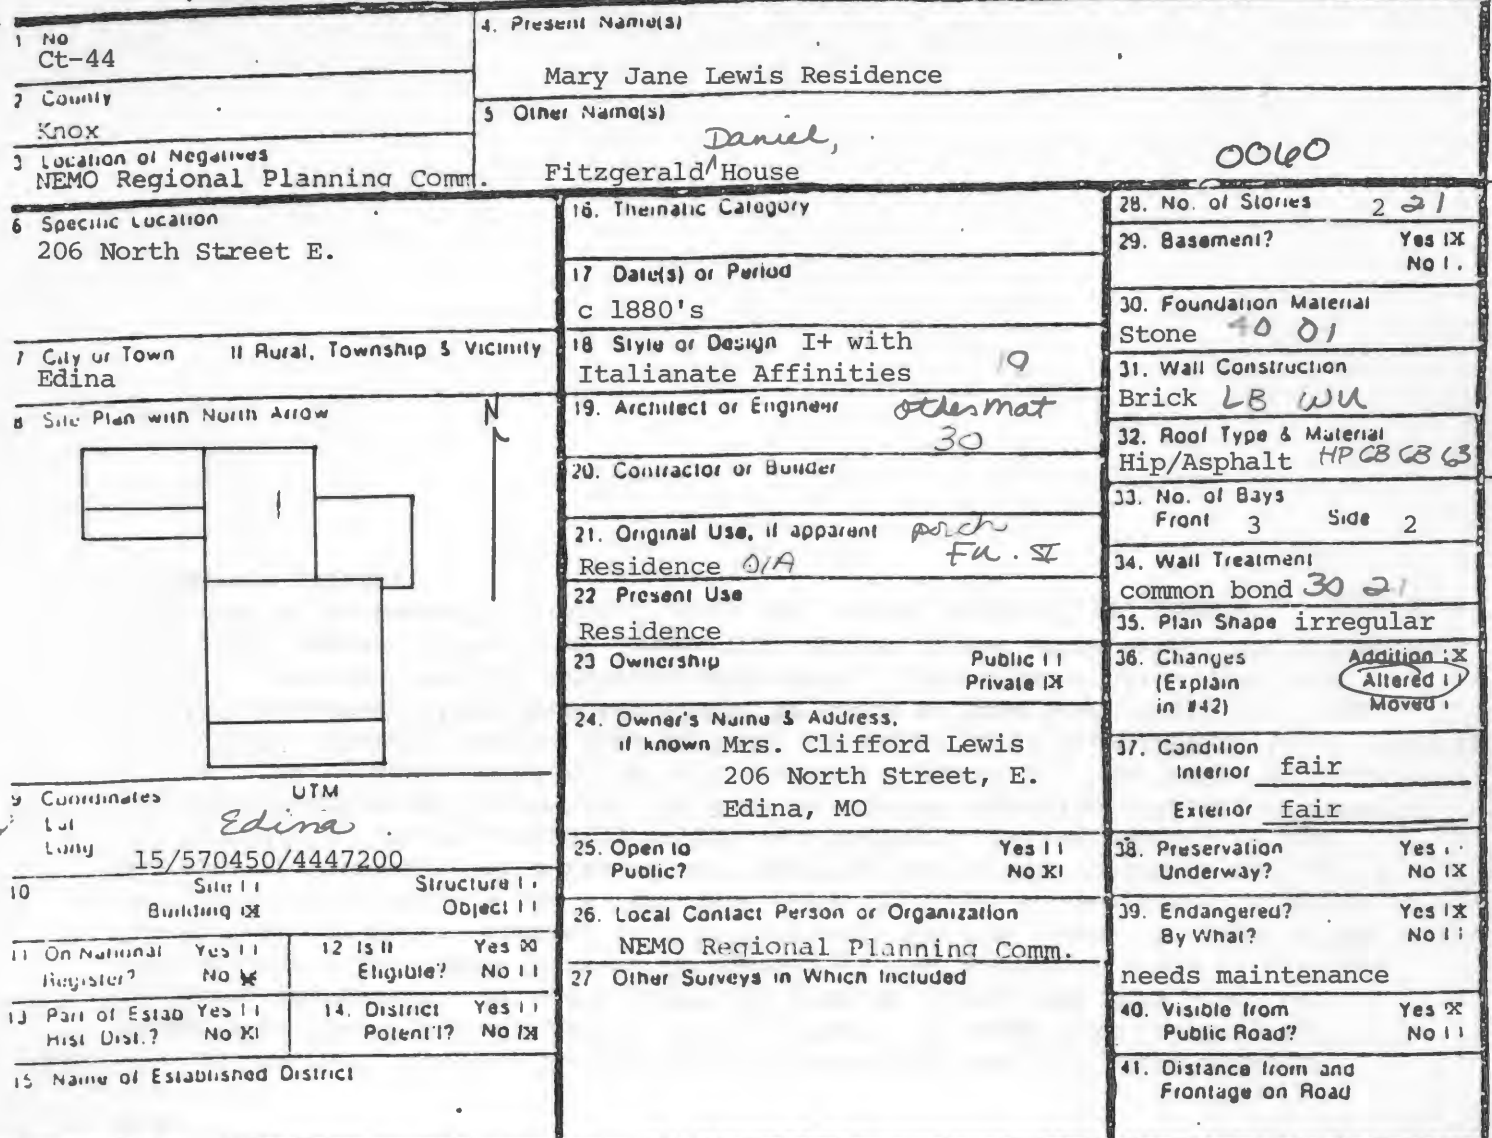 1 No
Ct-44
2 County
Knox
3 Location of Negatives
NEMO Regional Planning Comm.
4. Present Name(s)
Mary Jane Lewis Residence
5 Other Name(s)
Daniel,
Fitzgerald ^ House
0060
6 Specific Location
206 North Street E.
7 City or Town If Rural, Township & Vicinity
Edina
8 Site Plan with North Arrow
N
9 Coordinates UTM
Lat
Long
Edina
15/570450/4447200
10 Site [ ] Structure [ ]
Building [X] Object [ ]
11 On National Yes [ ]
Register? No [X]
12 Is It Yes [X]
Eligible? No [ ]
13 Part of Estab Yes [ ]
Hist Dist.? No [X]
14. District Yes [ ]
Potent'l? No [X]
15 Name of Established District
16. Thematic Category
17 Date(s) or Period
c 1880's
18 Style or Design I+ with
Italianate Affinities 19
19. Architect or Engineer
other mat
30
20. Contractor or Builder
21. Original Use, if apparent porch
Residence 01A
22 Present Use
Residence
23 Ownership Public [ ]
Private [X]
24. Owner's Name & Address,
if known Mrs. Clifford Lewis
206 North Street, E.
Edina, MO
25. Open to Yes [ ]
Public? No [X]
26. Local Contact Person or Organization
NEMO Regional Planning Comm.
27 Other Surveys in Which Included
28. No. of Stories 2 21
29. Basement? Yes [X]
No [ ]
30. Foundation Material
Stone 40 01
31. Wall Construction
Brick LB WU
32. Roof Type & Material
Hip/Asphalt HP CB GB 63
33. No. of Bays
Front 3 Side 2
34. Wall Treatment
common bond 30 21
35. Plan Shape irregular
36. Changes Addition [X]
(Explain Altered [ ]
in #42) Moved [ ]
37. Condition
Interior fair
Exterior fair
38. Preservation Yes [ ]
Underway? No [X]
39. Endangered? Yes [X]
By What? No [ ]
needs maintenance
40. Visible from Yes [X]
Public Road? No [ ]
41. Distance from and
Frontage on Road